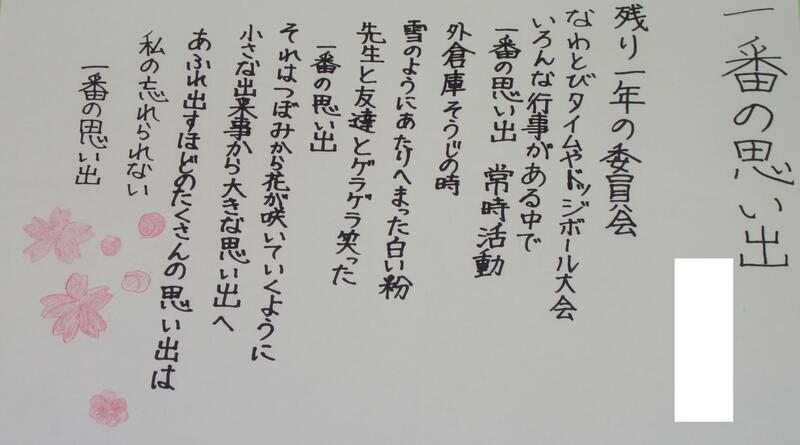 一番の思い出
残り一年の委員会
なわとびタイムやドッジボール大会
いろんな行事がある中で
一番の思い出　常時活動
外倉庫そうじの時
雪のようにあたりへまった白い粉
先生と友達とゲラゲラ笑った
一番の思い出
それはつぼみから花が咲いていくように
小さな出来事から大きな思い出へ
あふれ出すほどのたくさんの思い出は
私の忘れられない
一番の思い出